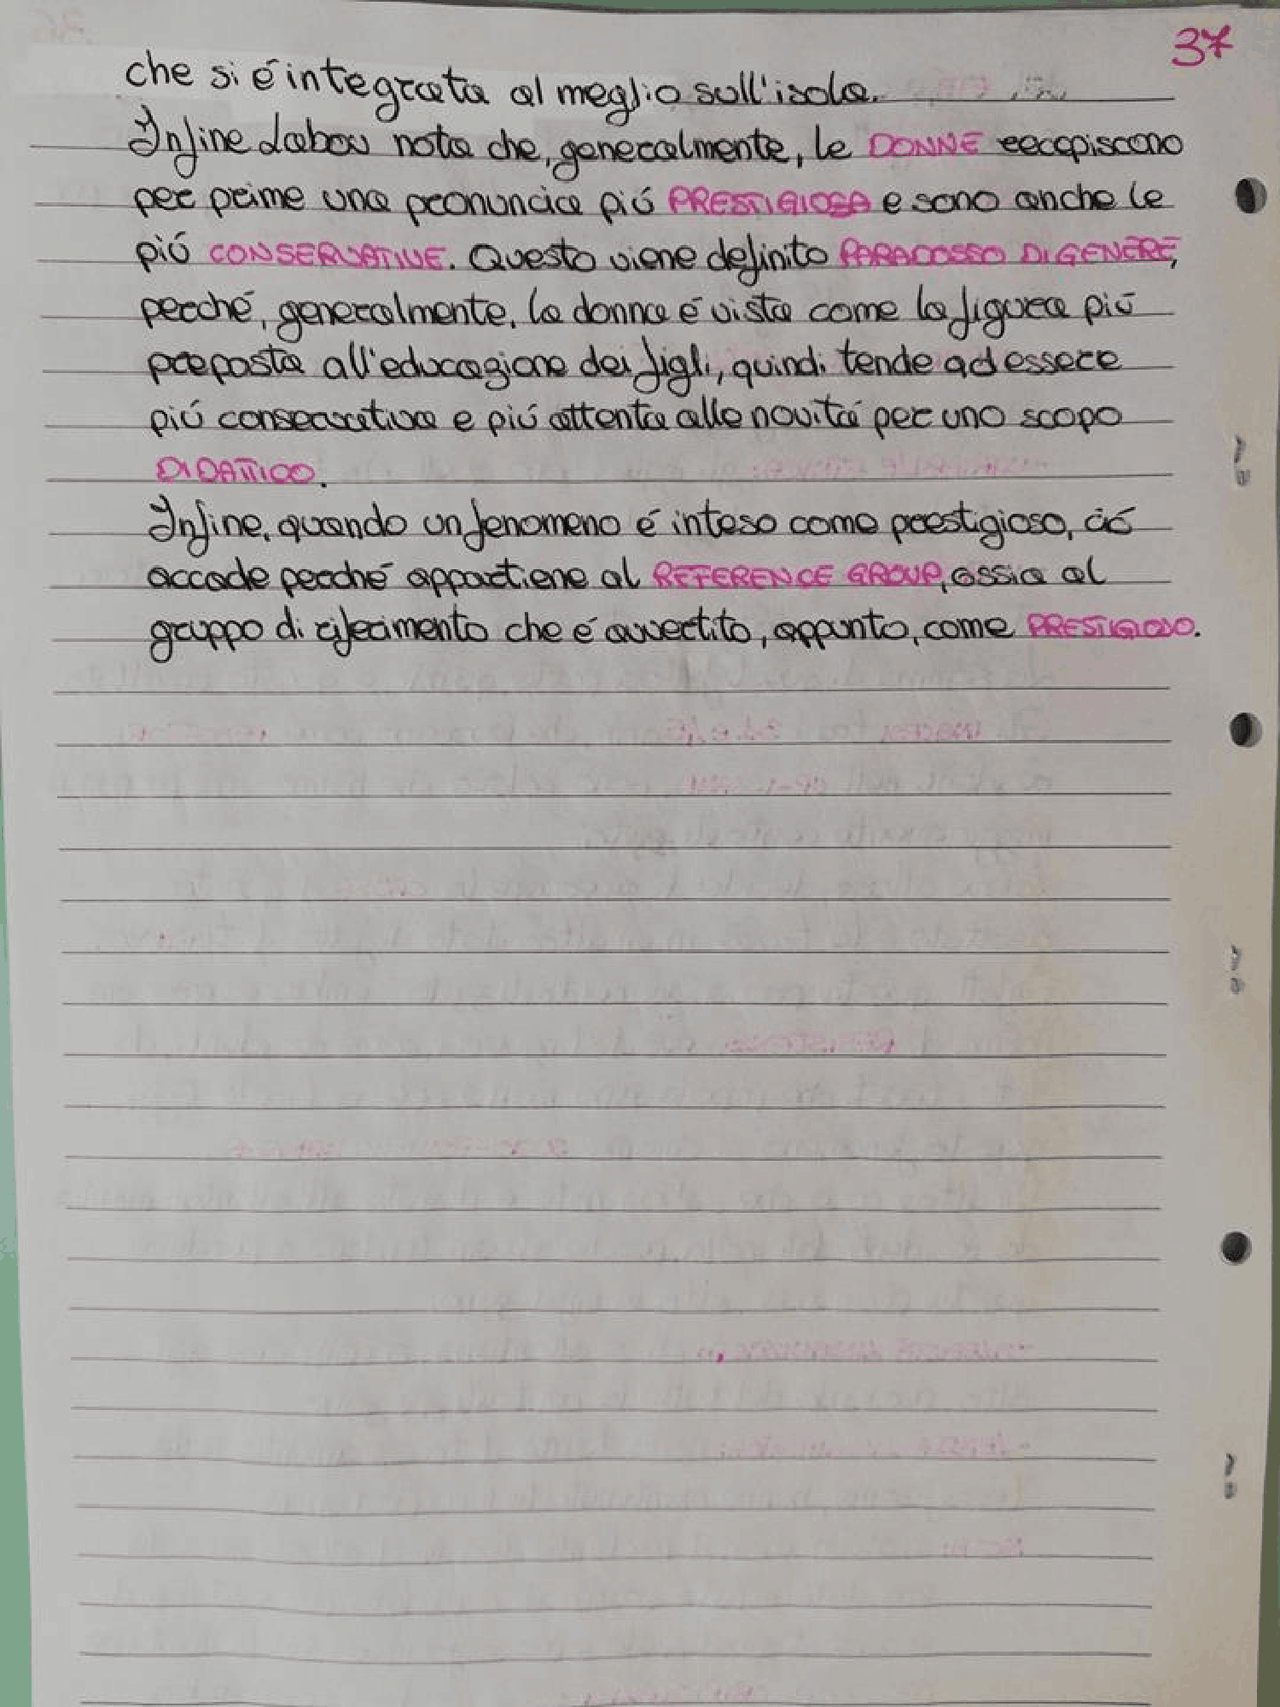 37
che si é integrata al meglio sull'isola.
Infine Labov nota che, generalmente, le DONNE recepiscono
per prime una pronuncia piú PRESTIGIOSA e sono anche le
piú CONSERVATIVE. Questo viene definito PARADOSSO DI GENERE,
perché, generalmente, la donna é vista come la figura piú
preposta all'educazione dei figli, quindi tende ad essere
piú conservativa e piú attenta alle novitá per uno scopo
DIDATTICO.
Infine, quando un fenomeno é inteso come prestigioso, ció
accade perché appartiene al REFERENCE GROUP, ossia al
gruppo di riferimento che é avvertito, appunto, come PRESTIGIOSO.